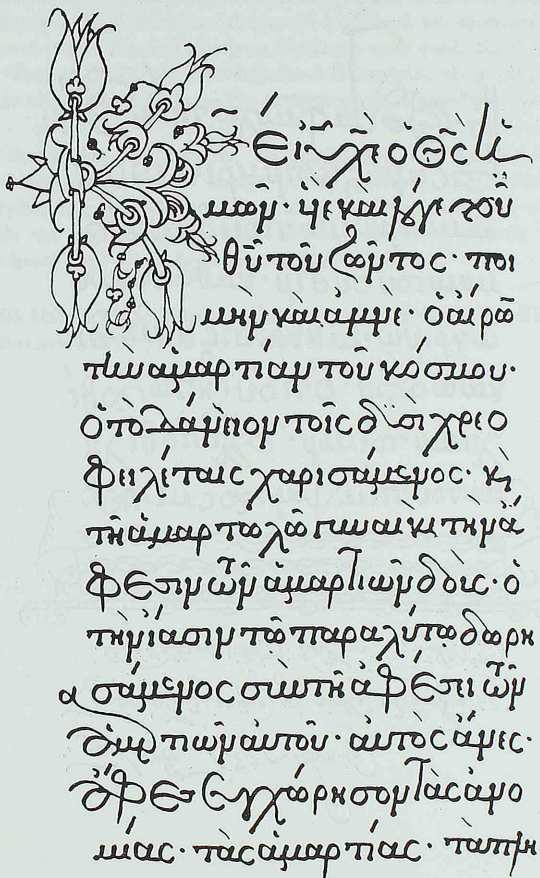 Κ̃Ε ἰῦ χὲ ὁ Θ̅ς ἡ
μῶν· υἱὲ καὶ λόγε τοῦ
θῦ τοῦ ζῶντος· ποι
μὴν καὶ ἀμνέ· ὁ αἴρω̅
τὴν ἁμαρτίαν τοῦ κόσμου·
ὁ τὸ δάνειον τοῖς δυσὶ χρεο
φειλέταις χαρισάμενος· κὶ
τῆ ἁμαρτωλῶ γυναικὶ τὴν ἄ
φεσιν τῶν ἁμαρτιῶν δοὺς· ὁ
τὴν ἴασιν τῶ παραλύτω δωρη
σάμενος σὺν τῆ ἀφέσει τῶν
ἁμαρτιῶν αὐτοῦ· αὐτὸς ἄνες·
ἄφες συγχώρησον τὰς ἀνο
μίας· τὰς ἁμαρτίας· τὰ